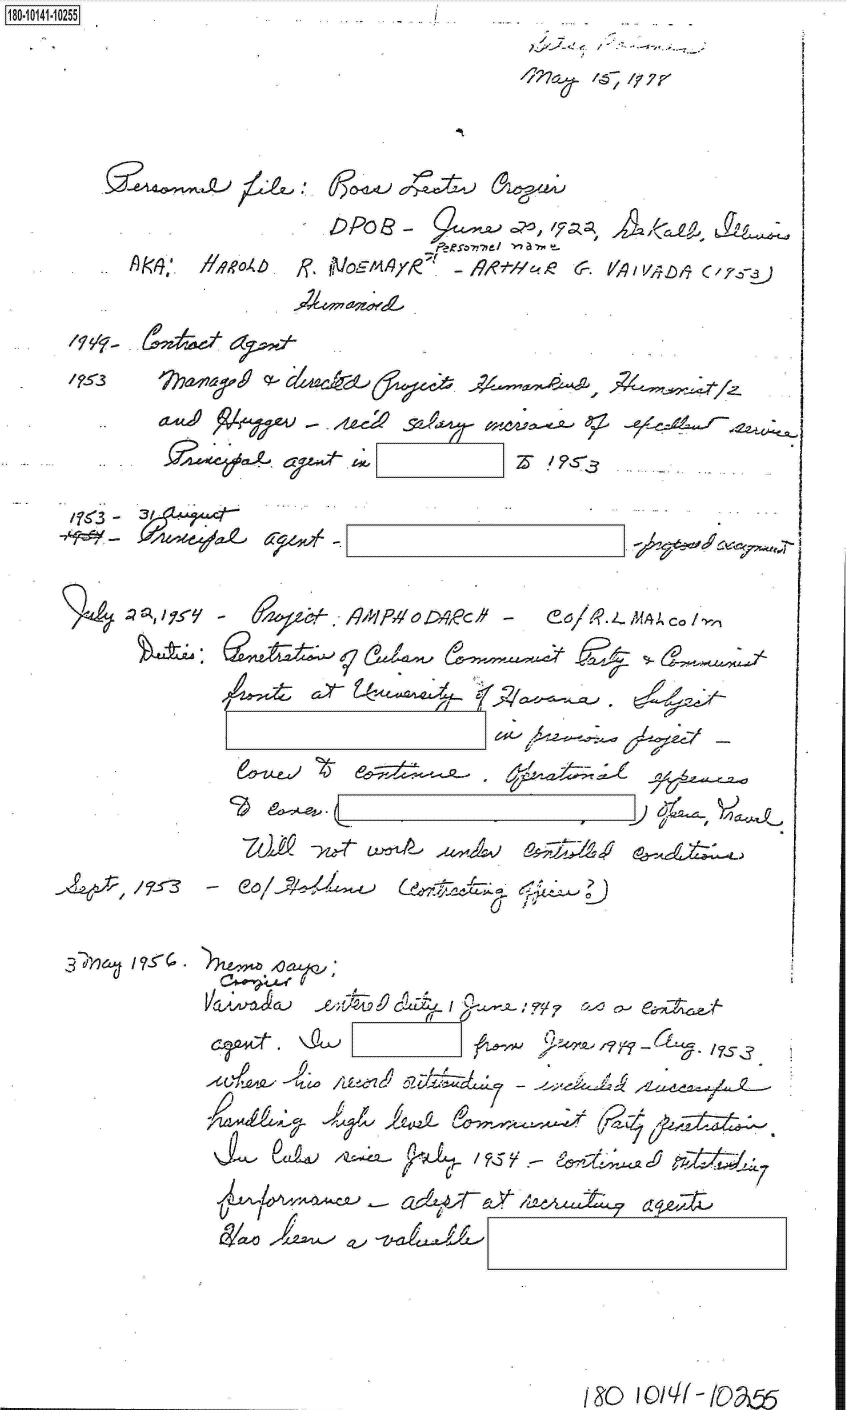 180-10141-10255
Betsy Palmer
May 15, 1978
Personnel file: Ross Lester Crozier
DPOB - June 20, 1922, DeKalb, Illinois
Personnel name
AKA: HAROLD R. NOEMAYR - ARTHUR G. VAIVADA (1953)
Humanoid
1949- Contract Agent
1953 Managed & directed Projects Humankind, Humanist/2
and Hugger - rec'd salary increase of excellent service
Principal agent in to 1953
1953 - 31 August
1954 - Principal agent - - proposed assignment
July 22, 1954 - Project: AMPHODARCH - CO/R.L MALcolm
Duties: Penetration of Cuban Communist Party & Communist
fronts at University of Havana. Subject
in previous project -
Cover to continue. Operational expenses
to cover. ( ) Opera, Travel.
Will not work under controlled conditions
Sept, 1953 - CO/ (contracting officer?)
3 May 1956. Memo says:
Crozier
Vaivada entered duty 1 June 1949 as a contract
agent. In from June 1949 - Aug. 1953.
where his record outstanding - included successful
handling high level Communist Party penetration.
In Cuba since July 1954 - continued outstanding
performance - adept at recruiting agents
Has been a valuable
180 10141-10255